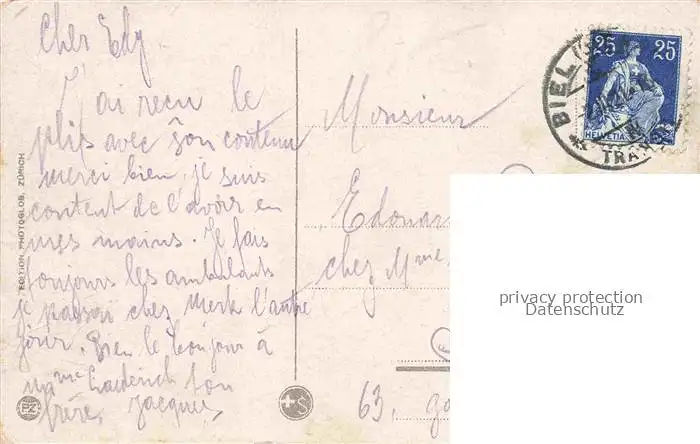 Cher Edy
J'ai reçu le
plis avec son contenu
merci bien, je suis
content de l'avoir en
mes mains. Je fais
toujours les ambulants
je passai chez Merk l'autre
jour. Bien le bonjour à
Mme ton
frère, Jacques
EDITION PHOTOGLOB, ZÜRICH
PZ
S
Monsieur
Edouar
chez Mme
63,
25 25
HELVETIA
BIEL
TRA
privacy protection
Datenschutz